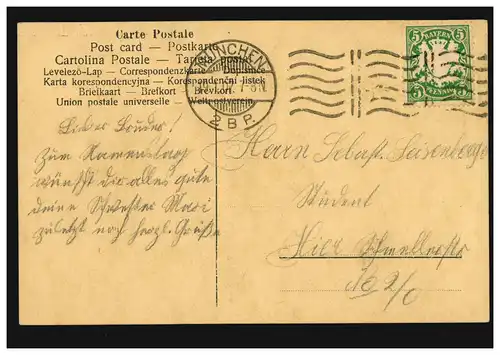 Carte Postale
Post card — Postkarte
Cartolina Postale — Tarjeta postal
Levelező-Lap — Correspondenzkarte — Dopisnice
Karta korespondencyjna — Korespondenční lístek
Briefkaart — Brefkort — Brevkort
Union postale universelle — Weltpostverein
MÜNCHEN
7-8N
2 B.P.
5 BAYERN 5
Lieber Bruder!
Zum Namenstag
wünscht dir alles gute
deine Schwester Mari
zuletzt noch herzl. Grüße
Herrn Sebast. Seisenberger
Student
Hier Schnellerstr.
No 2/0